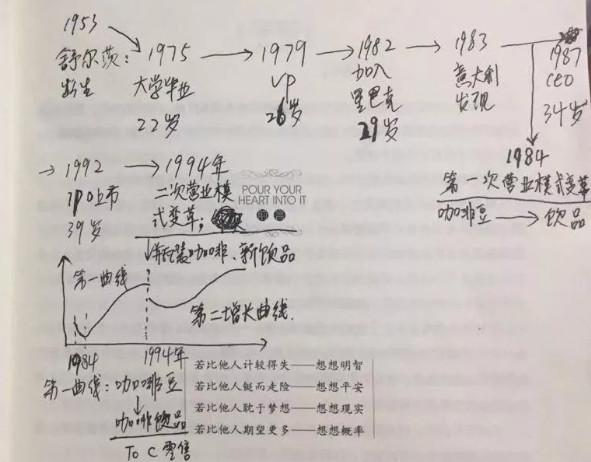 1953
舒尔茨:
出生
1975
大学毕业
22岁
1979
VP
26岁
1982
加入
星巴克
29岁
1983
意大利
发现
1987
CEO
34岁
1984
第一次营业模式变革
咖啡豆 → 饮品
1992
IPO上市
39岁
1994年
二次营业模
式变革;
POUR YOUR
HEART INTO IT
瓶装咖啡、新饮品
第一曲线
第二增长曲线.
1984
1994年
第一曲线: 咖啡豆
咖啡饮品
To C 零售
若比他人计较得失——想想明智
若比他人铤而走险——想想平安
若比他人耽于梦想——想想现实
若比他人期望更多——想想概率